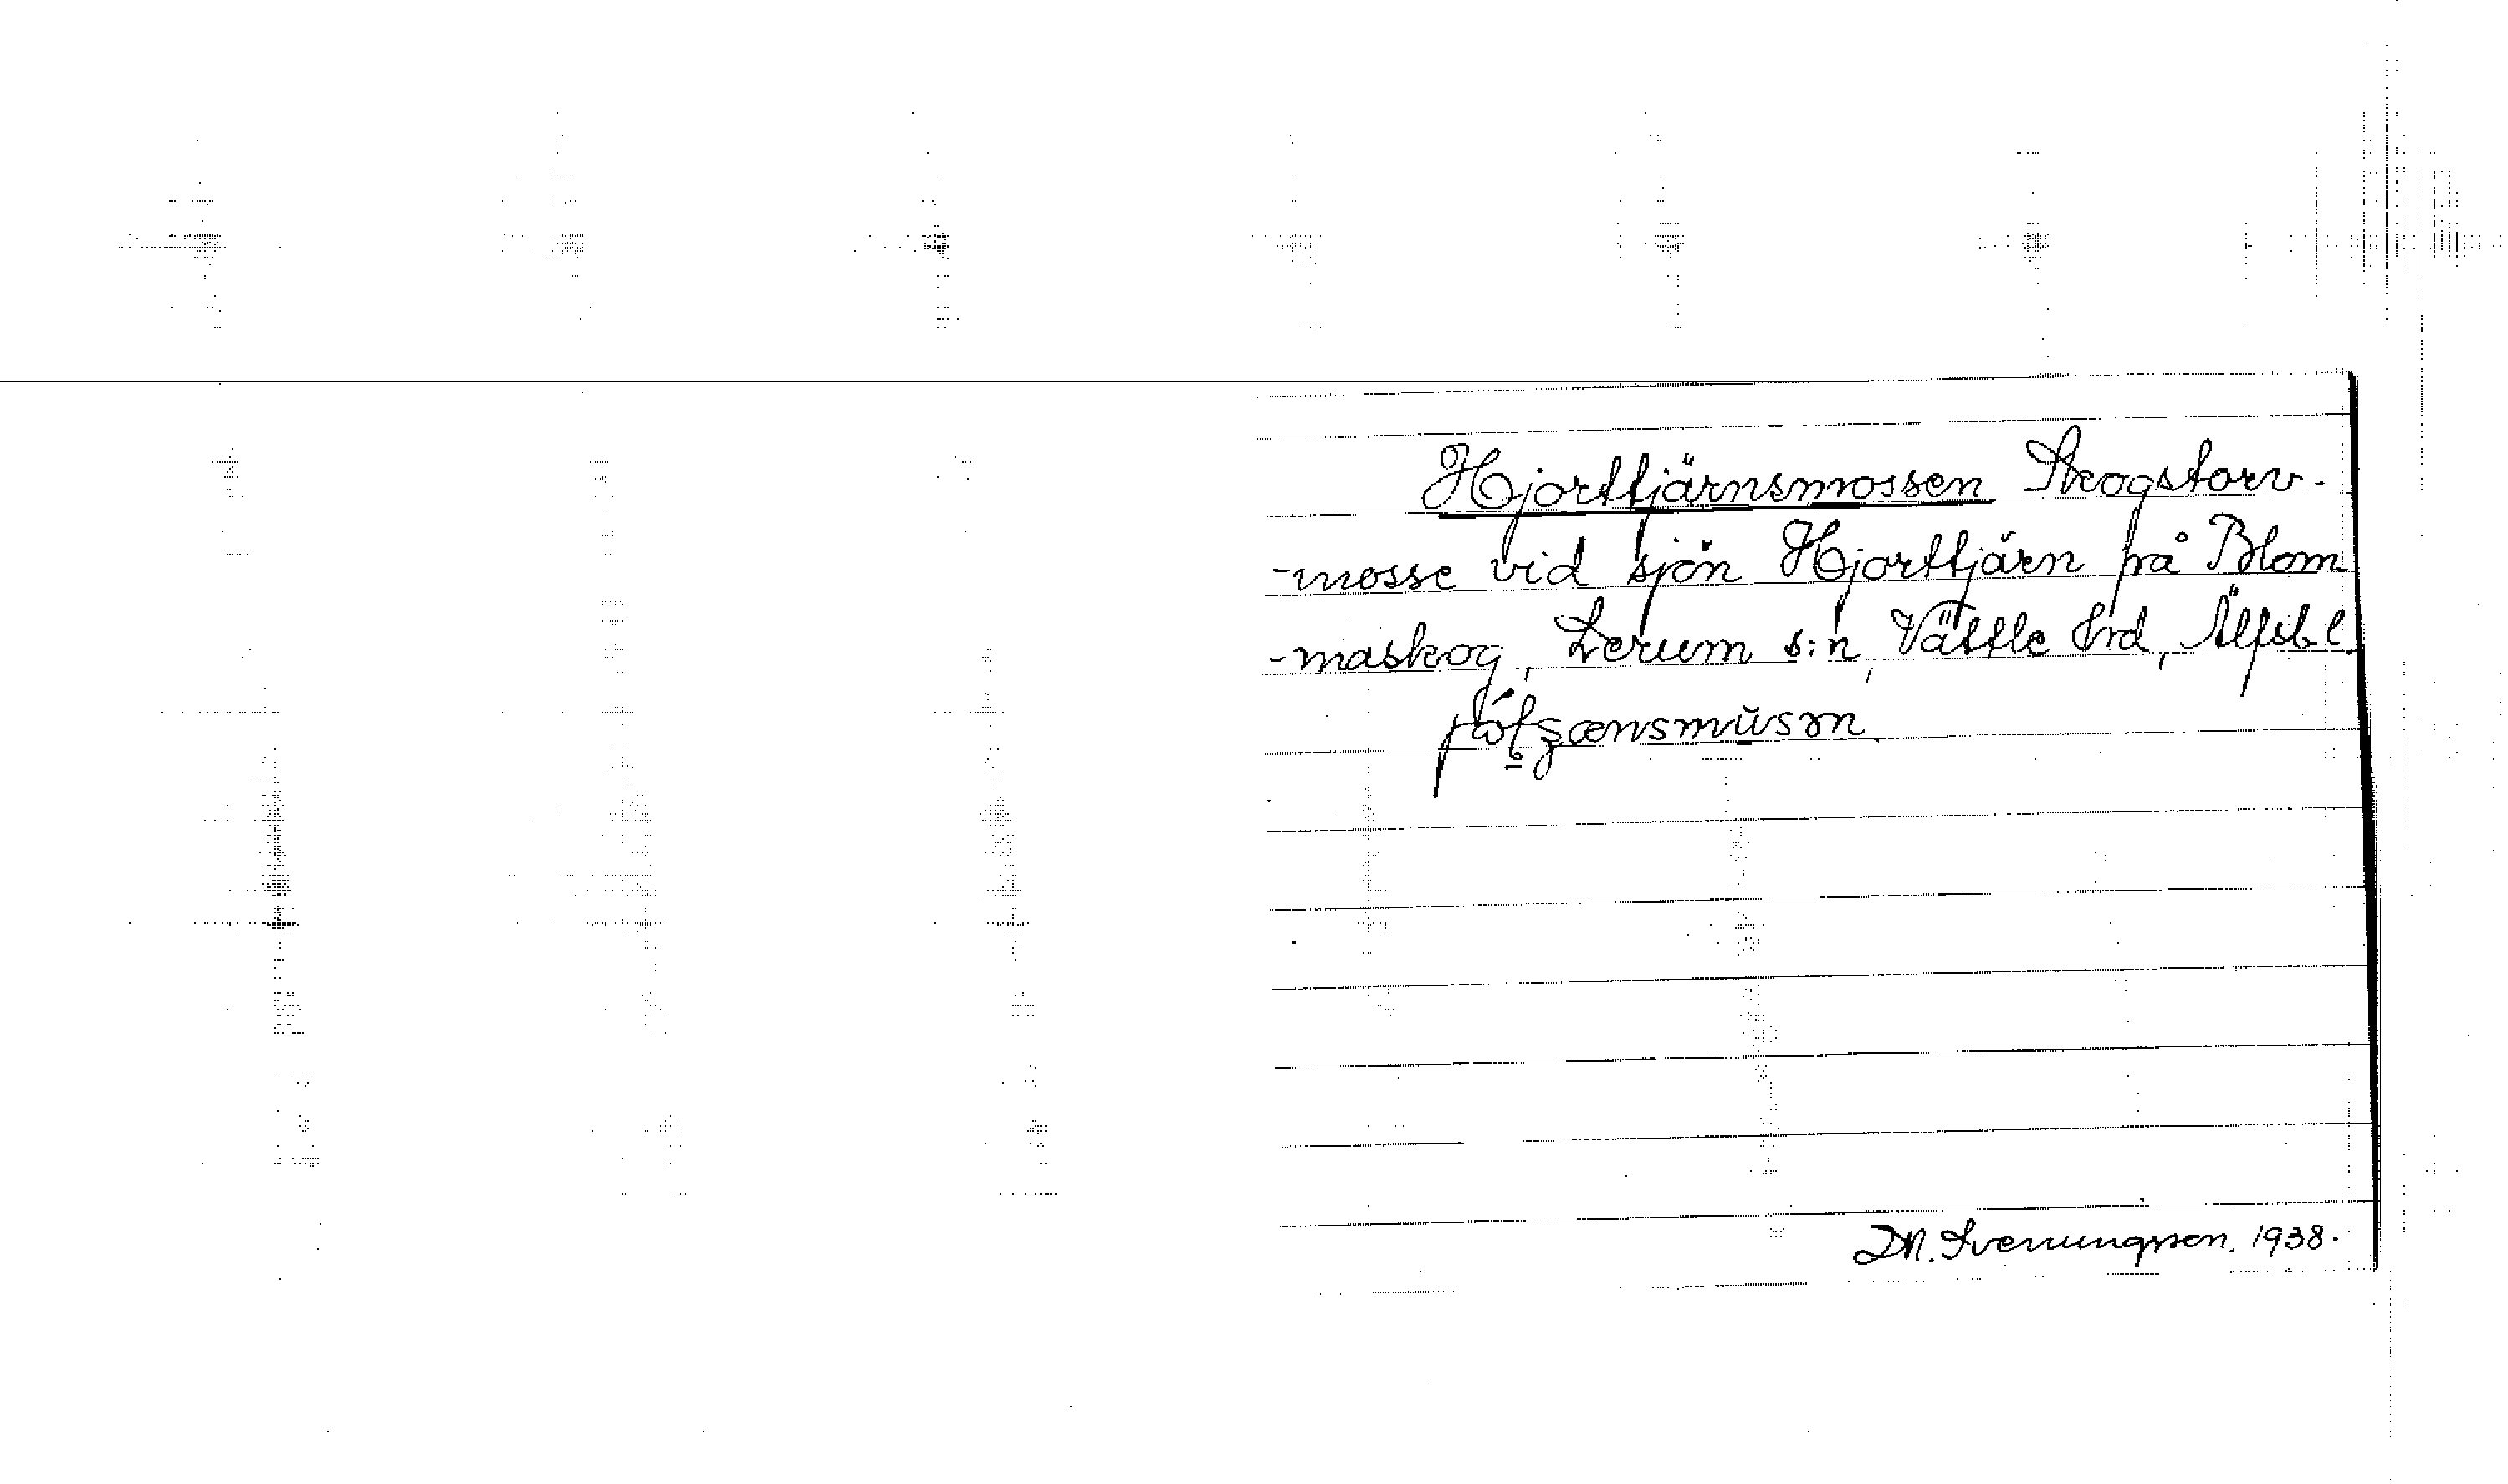 Hjorttjärnsmossen Skogstorv-
-mosse vid sjön Hjorttjärn på Blom
-maskog, Lerum s:n, Vättle hrd, Älfsb. l.
D.N. Svenungsson. 1938.